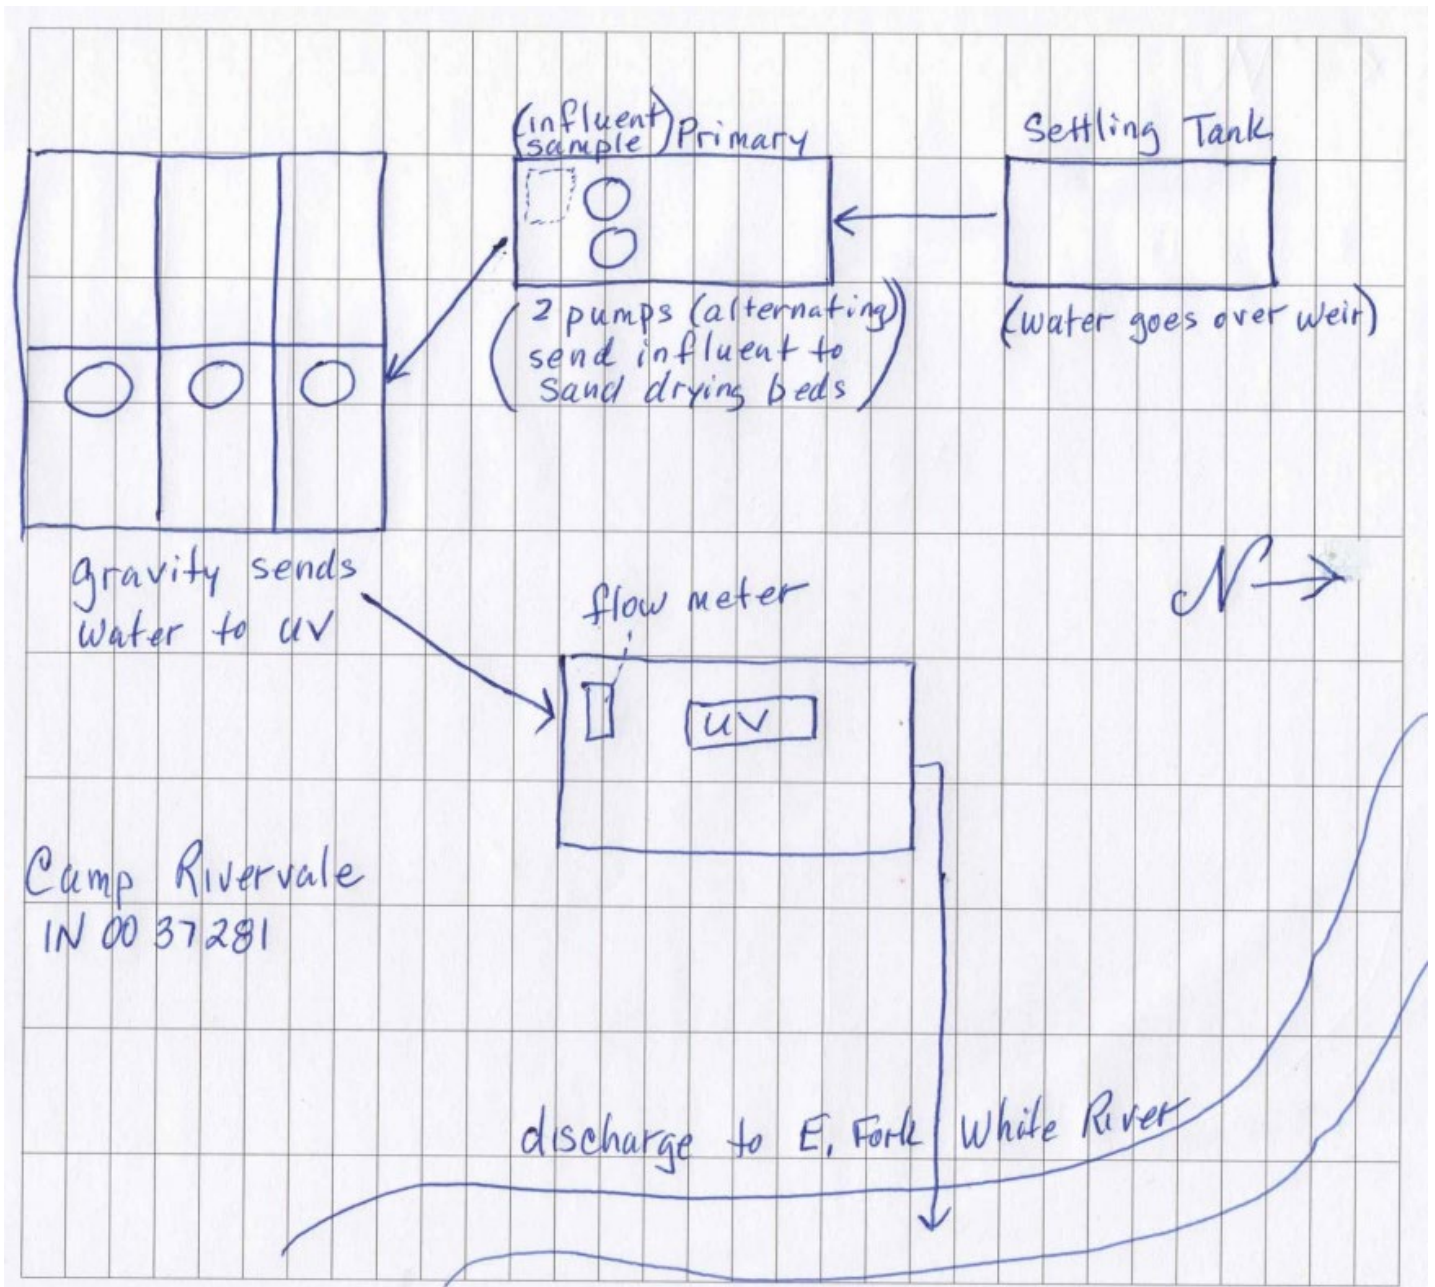 (influent)
sample
Primary
Settling Tank
(2 pumps (alternating)
send influent to
sand drying beds)
(water goes over weir)
gravity sends
water to UV
flow meter
N
UV
Camp Rivervale
IN 0037281
discharge to E. Fork White River